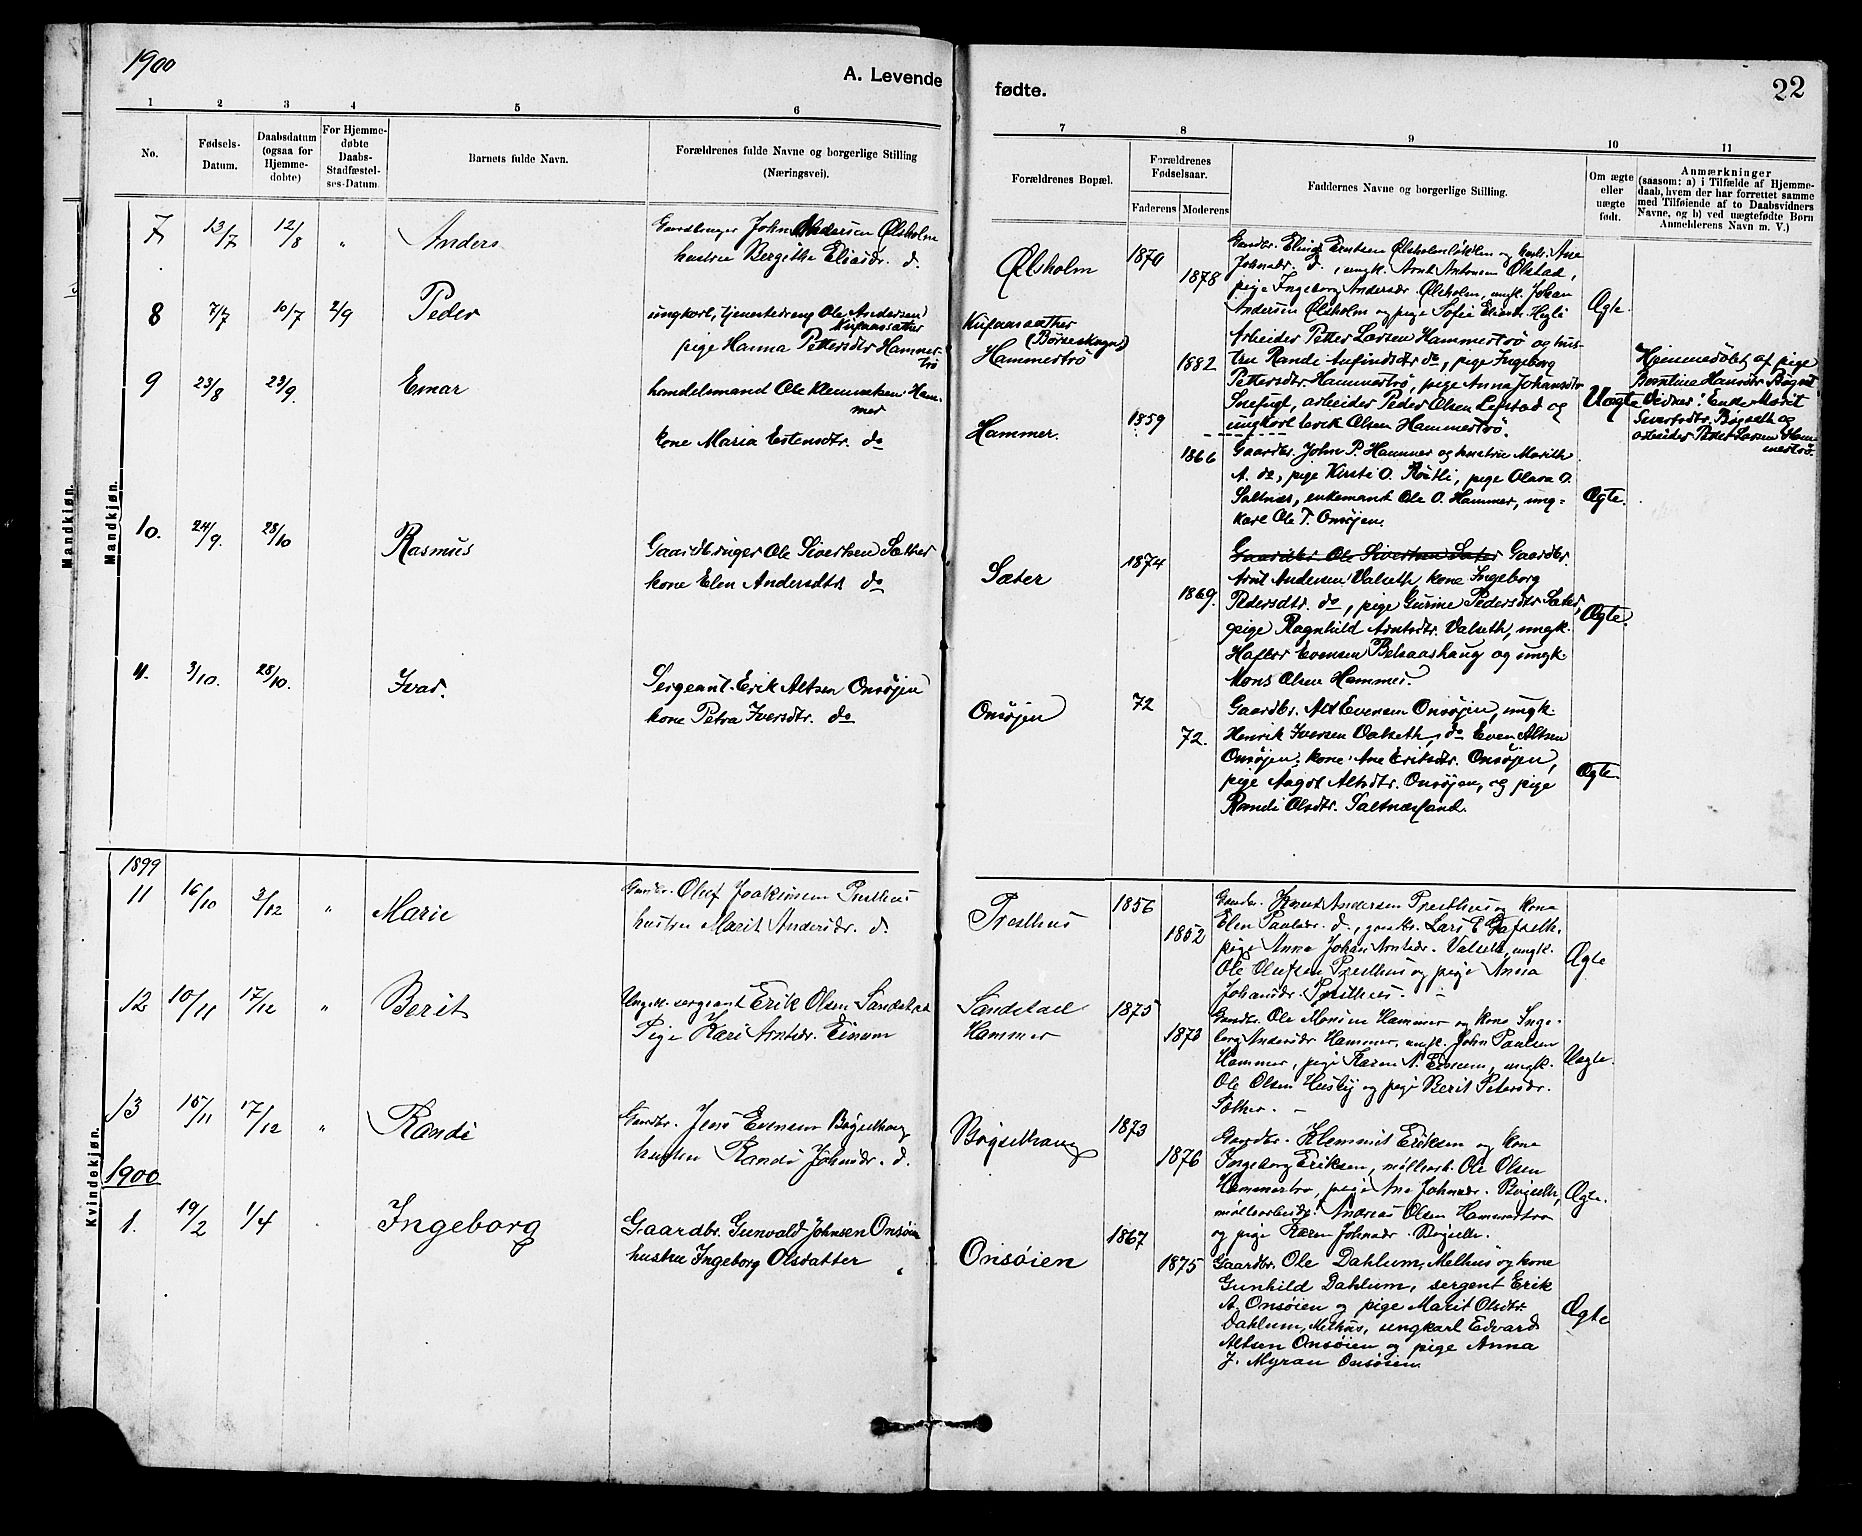 1900
A. Levende
fødte.
22
1 2 3 4 5 6
7 8 9 10 11
No.
Fødsels-
Datum.
Daabsdatum
(ogsaa for
Hjemme-
døbte)
For Hjemme-
døbte
Daabs-
Stadfæstel-
ses-Datum.
Barnets fulde Navn.
Forældrenes fulde Navne og borgerlige Stilling
(Næringsvei).
Forældrenes Bopæl.
Forældrenes
Fødselsaar.
Faderens Moderens
Faddernes Navne og borgerlige Stilling.
Om ægte
eller
uægte
født.
Anmærkninger
(saasom: a) i Tilfælde af Hjemme-
daab, hvem der har forrettet samme
med Tilføiende af to Daabsvidners
Navne, og b) ved uægtefødte Børn
Anmelderens Navn m. V.)
Mandkjøn.
Mandkjøn.
7 13/7 12/8 " Anders
Gaardbruger John Andersen Ølsholm
hustru Bergithe Eliasdr. d.
Ølsholm 1870 1878
Gaardbr. Eling Erntsen Ølsholmsløkken og hustr. Ane
Johnsdr. d., ungk. Arnt Antonsen Ølstad,
pige Ingeborg Andersdr. Ølsholm, ungk. Johan
Andersen Ølsholm og pige Sofie Eliasdr.
Ægte.
8 7/7 10/7 2/9 Peder
ungkarl, tjenestedreng Ole Andersen
pige Hanna Pettersdtr Hammer-
trø
(Børseskogn)
Hammertrø 1882
Arbeider Petter Larsen Hammertrø og hus-
tru Rande Anfindsdtr do, pige Ingeborg
Pettersdtr Hammertrø, pige Anna Johansdtr
Snefugl, arbeider Peder Olsen Lefstad og
ungkarl Erik Olsen Hammertrø.
Uægte
Hjemmedøbt af pige
Berntine Hansdtr Bøgset
Vidner: Enke Marit
Sivertsdtr. Bøgseth og
arbeider Peder Larsen Ham-
mertrø.
9 23/8 23/9. Emar
handelsmand Ole Klemetsen Ham-
mer
kone Maria Estensdtr. do
Hammer. 1859 1866
Gaardbr. John P. Hammer og hustru Marith
A. do, pige Kirsti O. Røtli, pige Olava O.
Saltnes, enkemand Ole O. Hammer, ung-
karl Ole T. Onsøjen.
Ægte.
10. 24/9. 28/10 Rasmus
Gaardbruger Ole Sivertsen Sæther
kone Elen Andersdtr do
Sæter 1874 1869.
Gaardbr Ole Sivertsen Sæter Gaardbr.
Arnt Andersen Valseth, kone Ingeborg
Pedersdtr. do, pige Gurine Pedersdtr Sæter,
pige Ragnhild Arntsdtr. Valseth, ungk.
Haftor Evensen Belsaashaug og ungk
Mons Olsen Hammer.
Ægte.
11. 3/10. 28/10. Ivar.
Sergeant Erik Altsen Onsøjen
kone Petra Iversdtr. do
Onsøjen 72 72.
Gaardbr. Alt Evensen Onsøjen, ungk.
Henrik Iversen Valseth, do Even Altsen
Onsøjen, kone Ane Eriksdtr. Onsøjen,
pige Aagot Altsdtr. Onsøjen, og pige
Randi Olsdtr. Saltnæssand.
Ægte.
Kvindekjøn.
1899
11 16/10 3/12 " Marie
Gaardbr. Oluf Joakimsen Presthus
hustru Marit Andersdr. d.
Presthus 1856 1852
Gaardbr. Knut Andersen Presthus og kone
Elen Paulsdr. d., gaardbr. Lars E. Gafseth,
pige Anna Johan Arntsdr. Valseth, ungk.
Ole Olufsen Presthus og pige Anna
Johansdr. Presthus. -
Ægte
12 10/11 17/12 " Berit
Ungk. sergeant Erik Olsen Sandstad
Pige Kari Arntsdr. Einum
Sandstad
Hammer 1875 1873
Gaardbr. Ole Monsen Hammer og kone Inge-
borg Andersdr. Hammer, ungk. John Paulsen
Hammer, pige Karen A. Evensen, ungk.
Ole Olsen Husby og pige Berit Petersdr.
Sæther. -
Uægte.
13 15/11 17/12 " Randi
Gaardbr. Jens Evensen Bøgsethaug
hustru Randi Johnsdr. d.
Bøgsethaug 1873 1876
Gaardbr. Klemmit Eriksen og kone
Ingeborg Eriksen, møllearb. Ole Olsen
Hammertrø, pige Ane Johnsdr. Bøgseth,
møllearbeider Andreas Olsen Hammertrø
og pige Karen Johnsdr. Bøgseth.
Ægte.
1900
1. 19/2 1/4 Ingeborg
Gaardbr. Gunvald Johnsen Onsøien
hustru Ingeborg Olsdatter "
Onsøien 1867 1875
Gaardbr. Ole Dahlum, Melhus og kone
Gunhild Dahlum, sergent Erik
A. Onsøien og pige Marit Olsdtr.
Dahlum, Melhus, ungkarl Edvard
Altsen Onsøien og pige Anna
J. Myran Onsøien.
Ægte